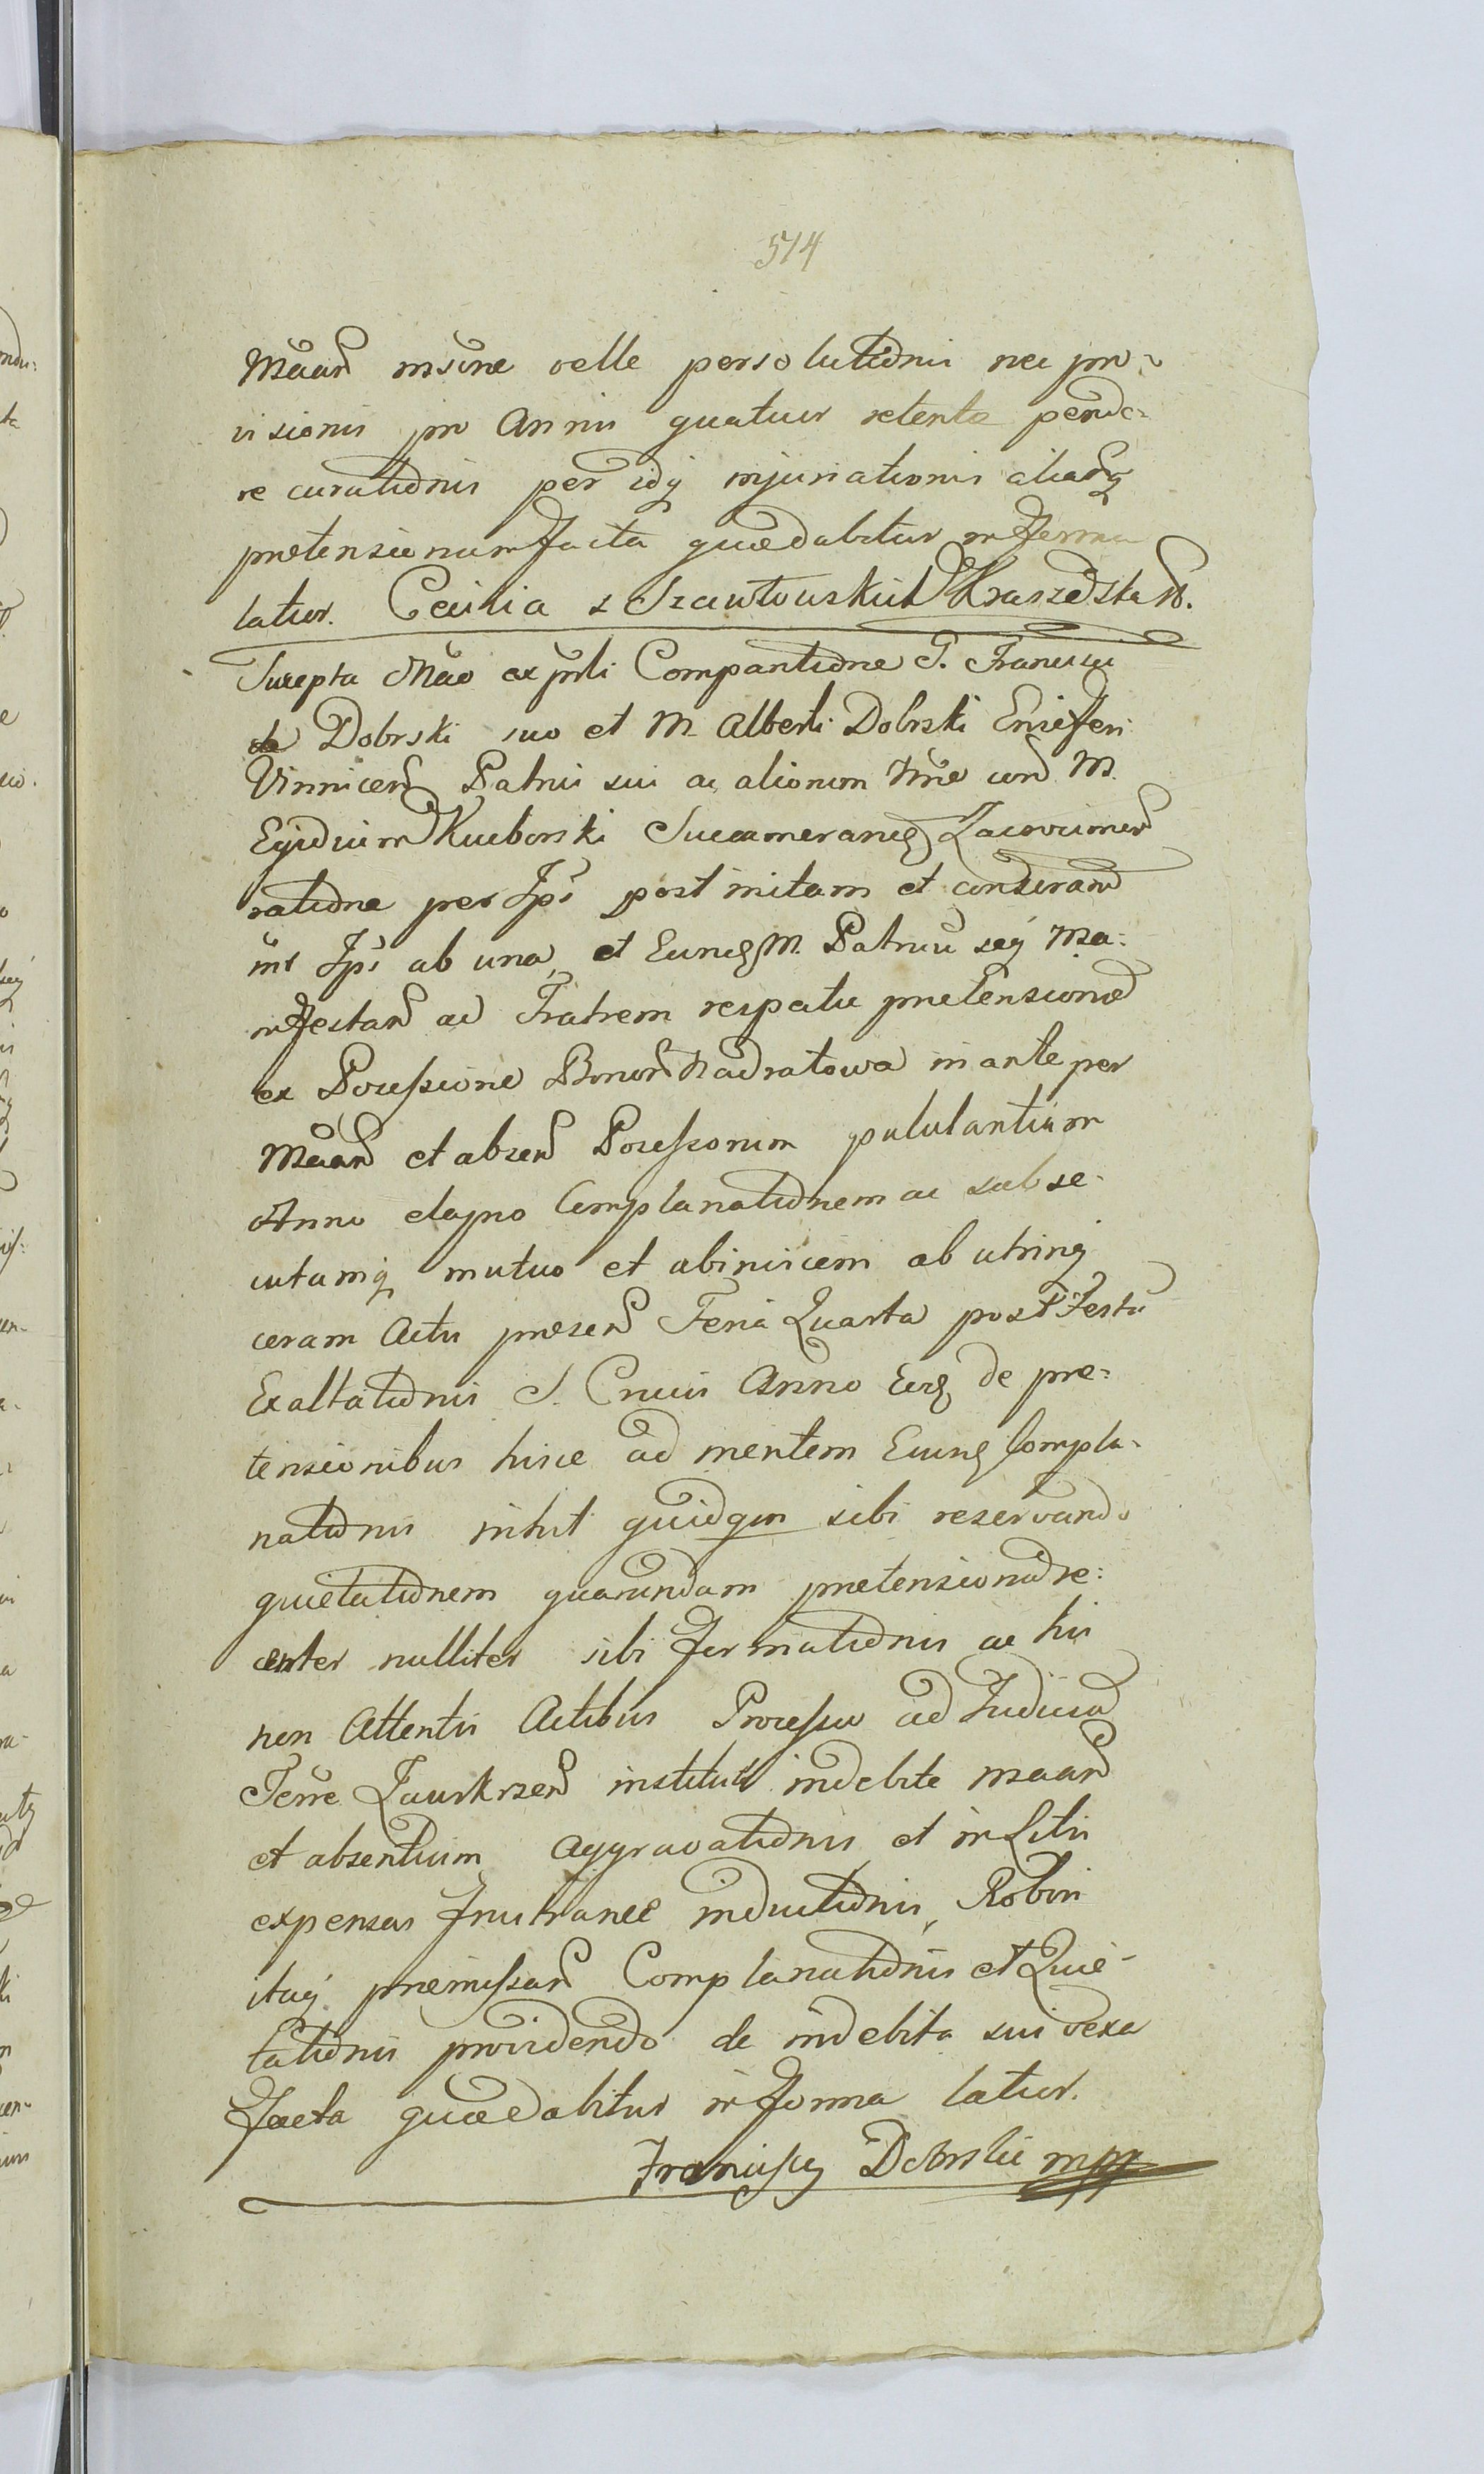 514
Maan insine velle persolutionis nec pro-
visionis pro Annis quatuor retente pende-
re curationis per idq injuriationis aliarq
pretensionum facta quae dabitur in forma
latior. Cecilia z Szawłowskich
Suscepta Mao ex pnti Comparitione G. Francisci
de Dobrski suo et M. Alberti Dobrski Ensiferi
Vinnicen Patrui sui ac aliorum Nne con M.
Egidium Kuciborski Succameranum
ratione per Ipsi post initam et
int Ipsi ab una, et Eundq M. Patruu seq Ma-
nifestan ac Fratrem respectu pretensionu
ex Possessione Bonor Nadratowa in ante per
Maan et absen Possessorum pululantium
Anno elapso Complanationem ac subse-
cutamq mutuo et abinvicem ab utrinq
coram Actis presen Feria Quarta post Festu
Exaltationis S. Crucis Anno Eodq de pre-
tensionibus hisce ad mentem Eiusq Compla-
nationis nihil quidqm sibi reservando
quietationem quarundam pretensionu re-
center nulliter sibi formationis ac his
non Attentis Actibus Processu ad Judicia
Terre institut indebite maan
et absentium aggravationis et in Litis
expensas frustranee inductionis, Robori
itaq premissan Complanationis et Quie-
tationis providendo de indebita sui vexa
facta quae dabitur in forma latior.
Franciscq Dobrski mpp